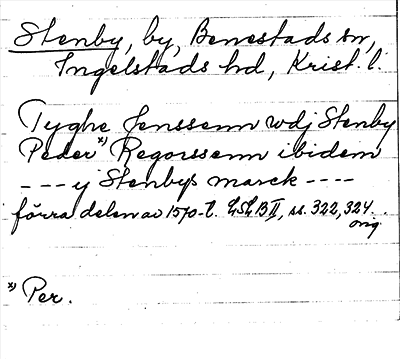 Stenby, by, Benestads sn,
Ingelstads hd, Krist. l.
Tyghe Jenssenn wdj Stenby
Peder*) Regorssenn ibidem
--- y Stenbys marck ----
förra delen av 1570-t. LSLB II, ss. 322, 324.
orig.
*) Per.